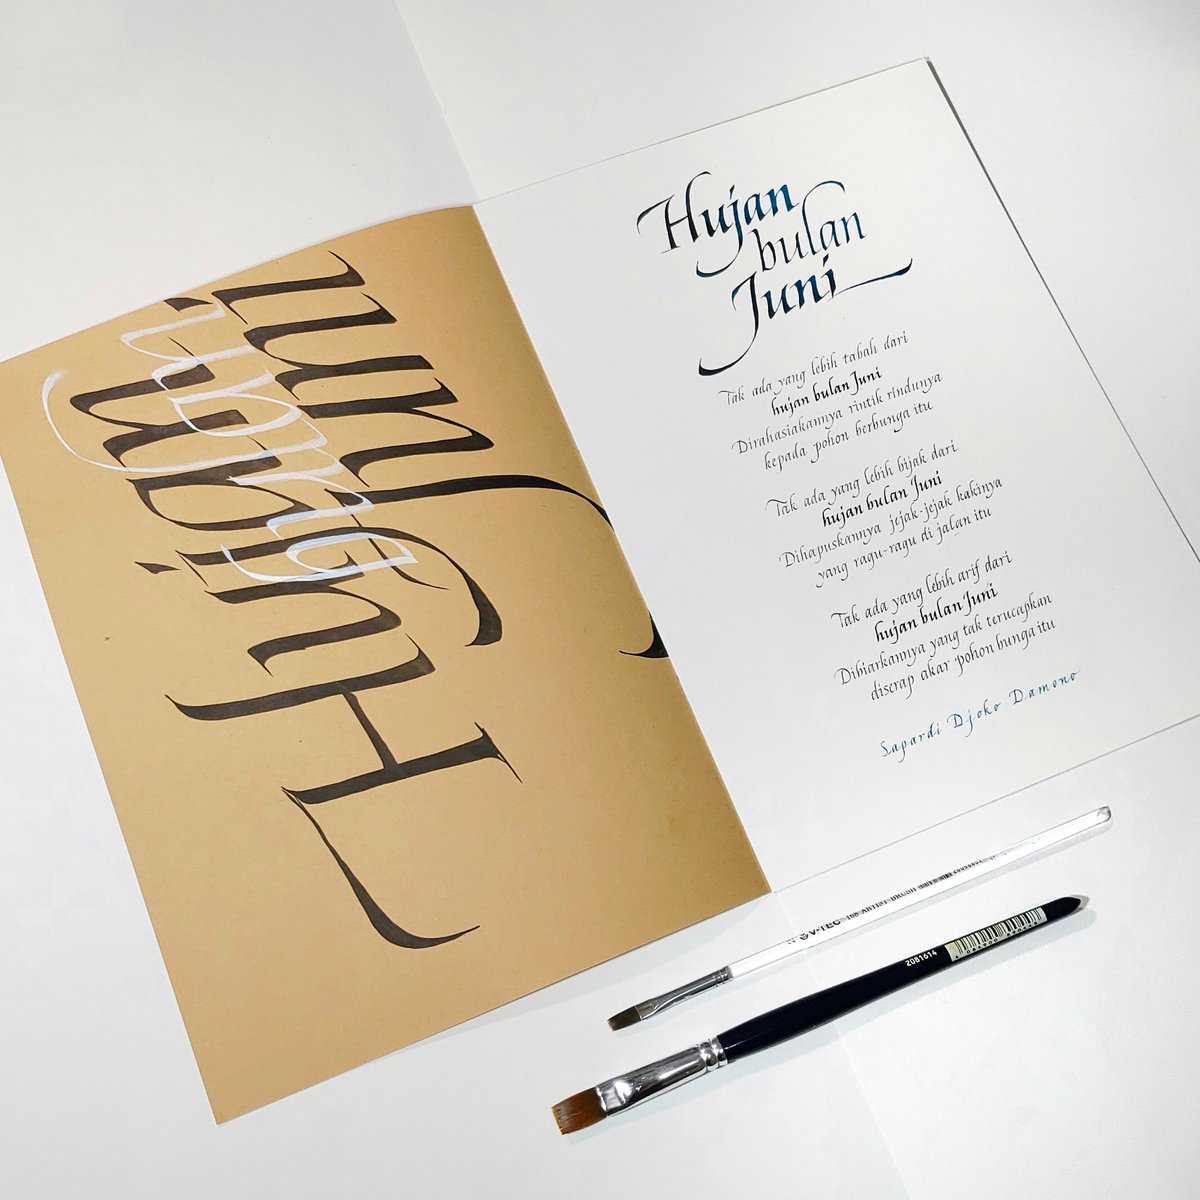 Hujan
bulan
Juni
Hujan
bulan
Juni
Tak ada yang lebih tabah dari
hujan bulan Juni
Dirahasiakannya rintik rindunya
kepada pohon berbunga itu
Tak ada yang lebih bijak dari
hujan bulan Juni
Dihapuskannya jejak-jejak kakinya
yang ragu-ragu di jalan itu
Tak ada yang lebih arif dari
hujan bulan Juni
Dibiarkannya yang tak terucapkan
diserap akar pohon bunga itu
Sapardi Djoko Damono
V-TEC 100 ARTIST BRUSH
2081614